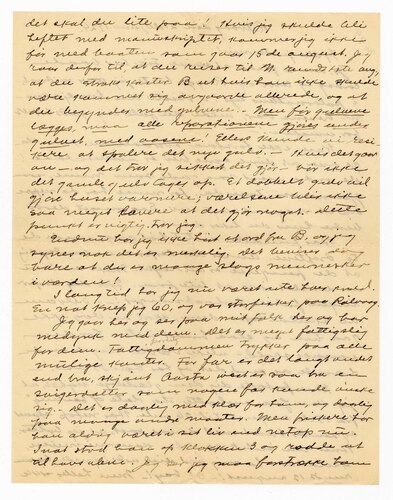 det skal du lite paa! Hvis jeg skulde bli
heftet med manuskriptet, kommer jeg ikke
før med baaten som gaar 15 de august. Jeg
raar derfor til at du reiser til N. rundt 1ste aug,
at du straks kaster B ut hvis han ikke skulde
være kommet sig avgaarde allerede, og at
du begynder med gulvene. — Men før gulvene
lægges, maa alle operationene gjøres under
gulvet, med aasene! Ellers kunde vi risi-
kere at spolere det nye gulv. — Hvis det gaar
an — og det tror jeg sikkert det gjør — bør ikke
det gamle gulv tages op. Et dobbelt gulv vil
gjøre huset varmere; værelsene blir ikke
saa meget lavere at det gjør noget. Dette
punkt er vigtig, tror jeg.
Endnu har jeg ikke hørt et ord fra B. og jeg
synes nok det er merkelig. Det beviser
bare at der er mange slags mennesker
i verden!
I lang tid har jeg nu været ute hver kveld.
En nat krep jeg 60, og var storfisker paa
Jeg gaar her og ser paa mit folk her og har
medynk med dem. Det er meget fattigslig
for dem. Fattigdommen trykker paa alle
mulige kanter. For far er det langt andet
end bra, skjønt Aasta west er saa bra en
svigerdatter som nogen far kunde ønske
sig. Det er daarlig med klær for ham, og daarlig
paa mange andre maater. Men friskere har
han aldrig været i sit liv end netop nu.
Inat stod han op klokken 3 og rodde ut
til havs alene. Jeg maa forstrække ham